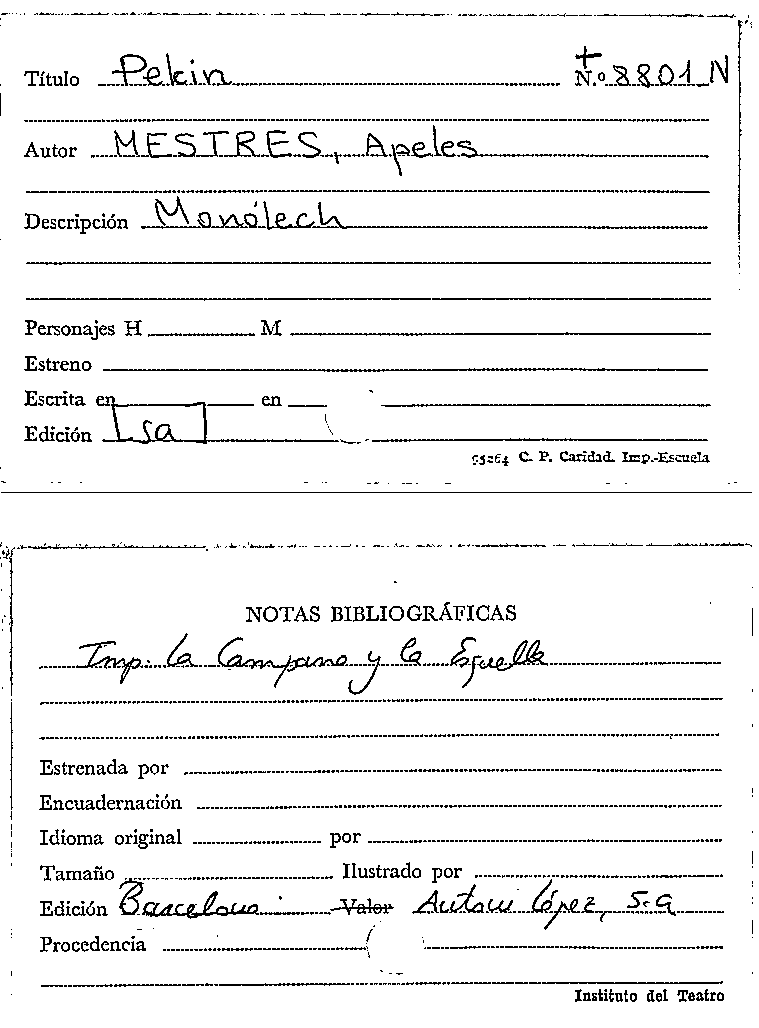 Título Pekin N.º 8801 N
Autor MESTRES, Apeles
Descripción Monólech
Personajes H M
Estreno
Escrita en en
Edición sa
95264 C. P. Caridad. Imp.-Escuela
NOTAS BIBLIOGRÁFICAS
Imp. La Campana y la Esquella
Estrenada por
Encuadernación
Idioma original por
Tamaño Ilustrado por
Edición Barcelona: Valor Antoni López, s.a
Procedencia
Instituto del Teatro